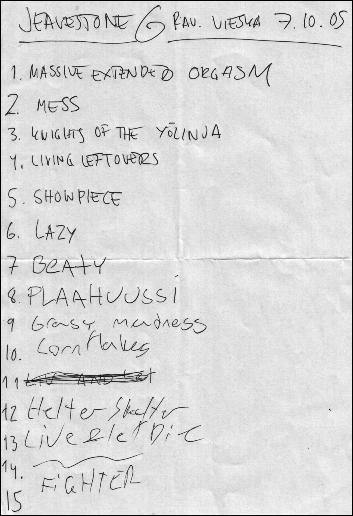 JEAVESTONE @ RAU. VIESKA 7.10.05
1. MASSIVE EXTENDED ORGASM
2. MESS
3. KNIGHTS OF THE YÖLINJA
4. LIVING LEFTOVERS
5. SHOWPIECE
6. LAZY
7 BEATY
8. PLAAHUUSSI
9 Grasy madness
10. Cornflakes
11
12 Helter Skelter
13 Live & let Die
14.
FIGHTER
15